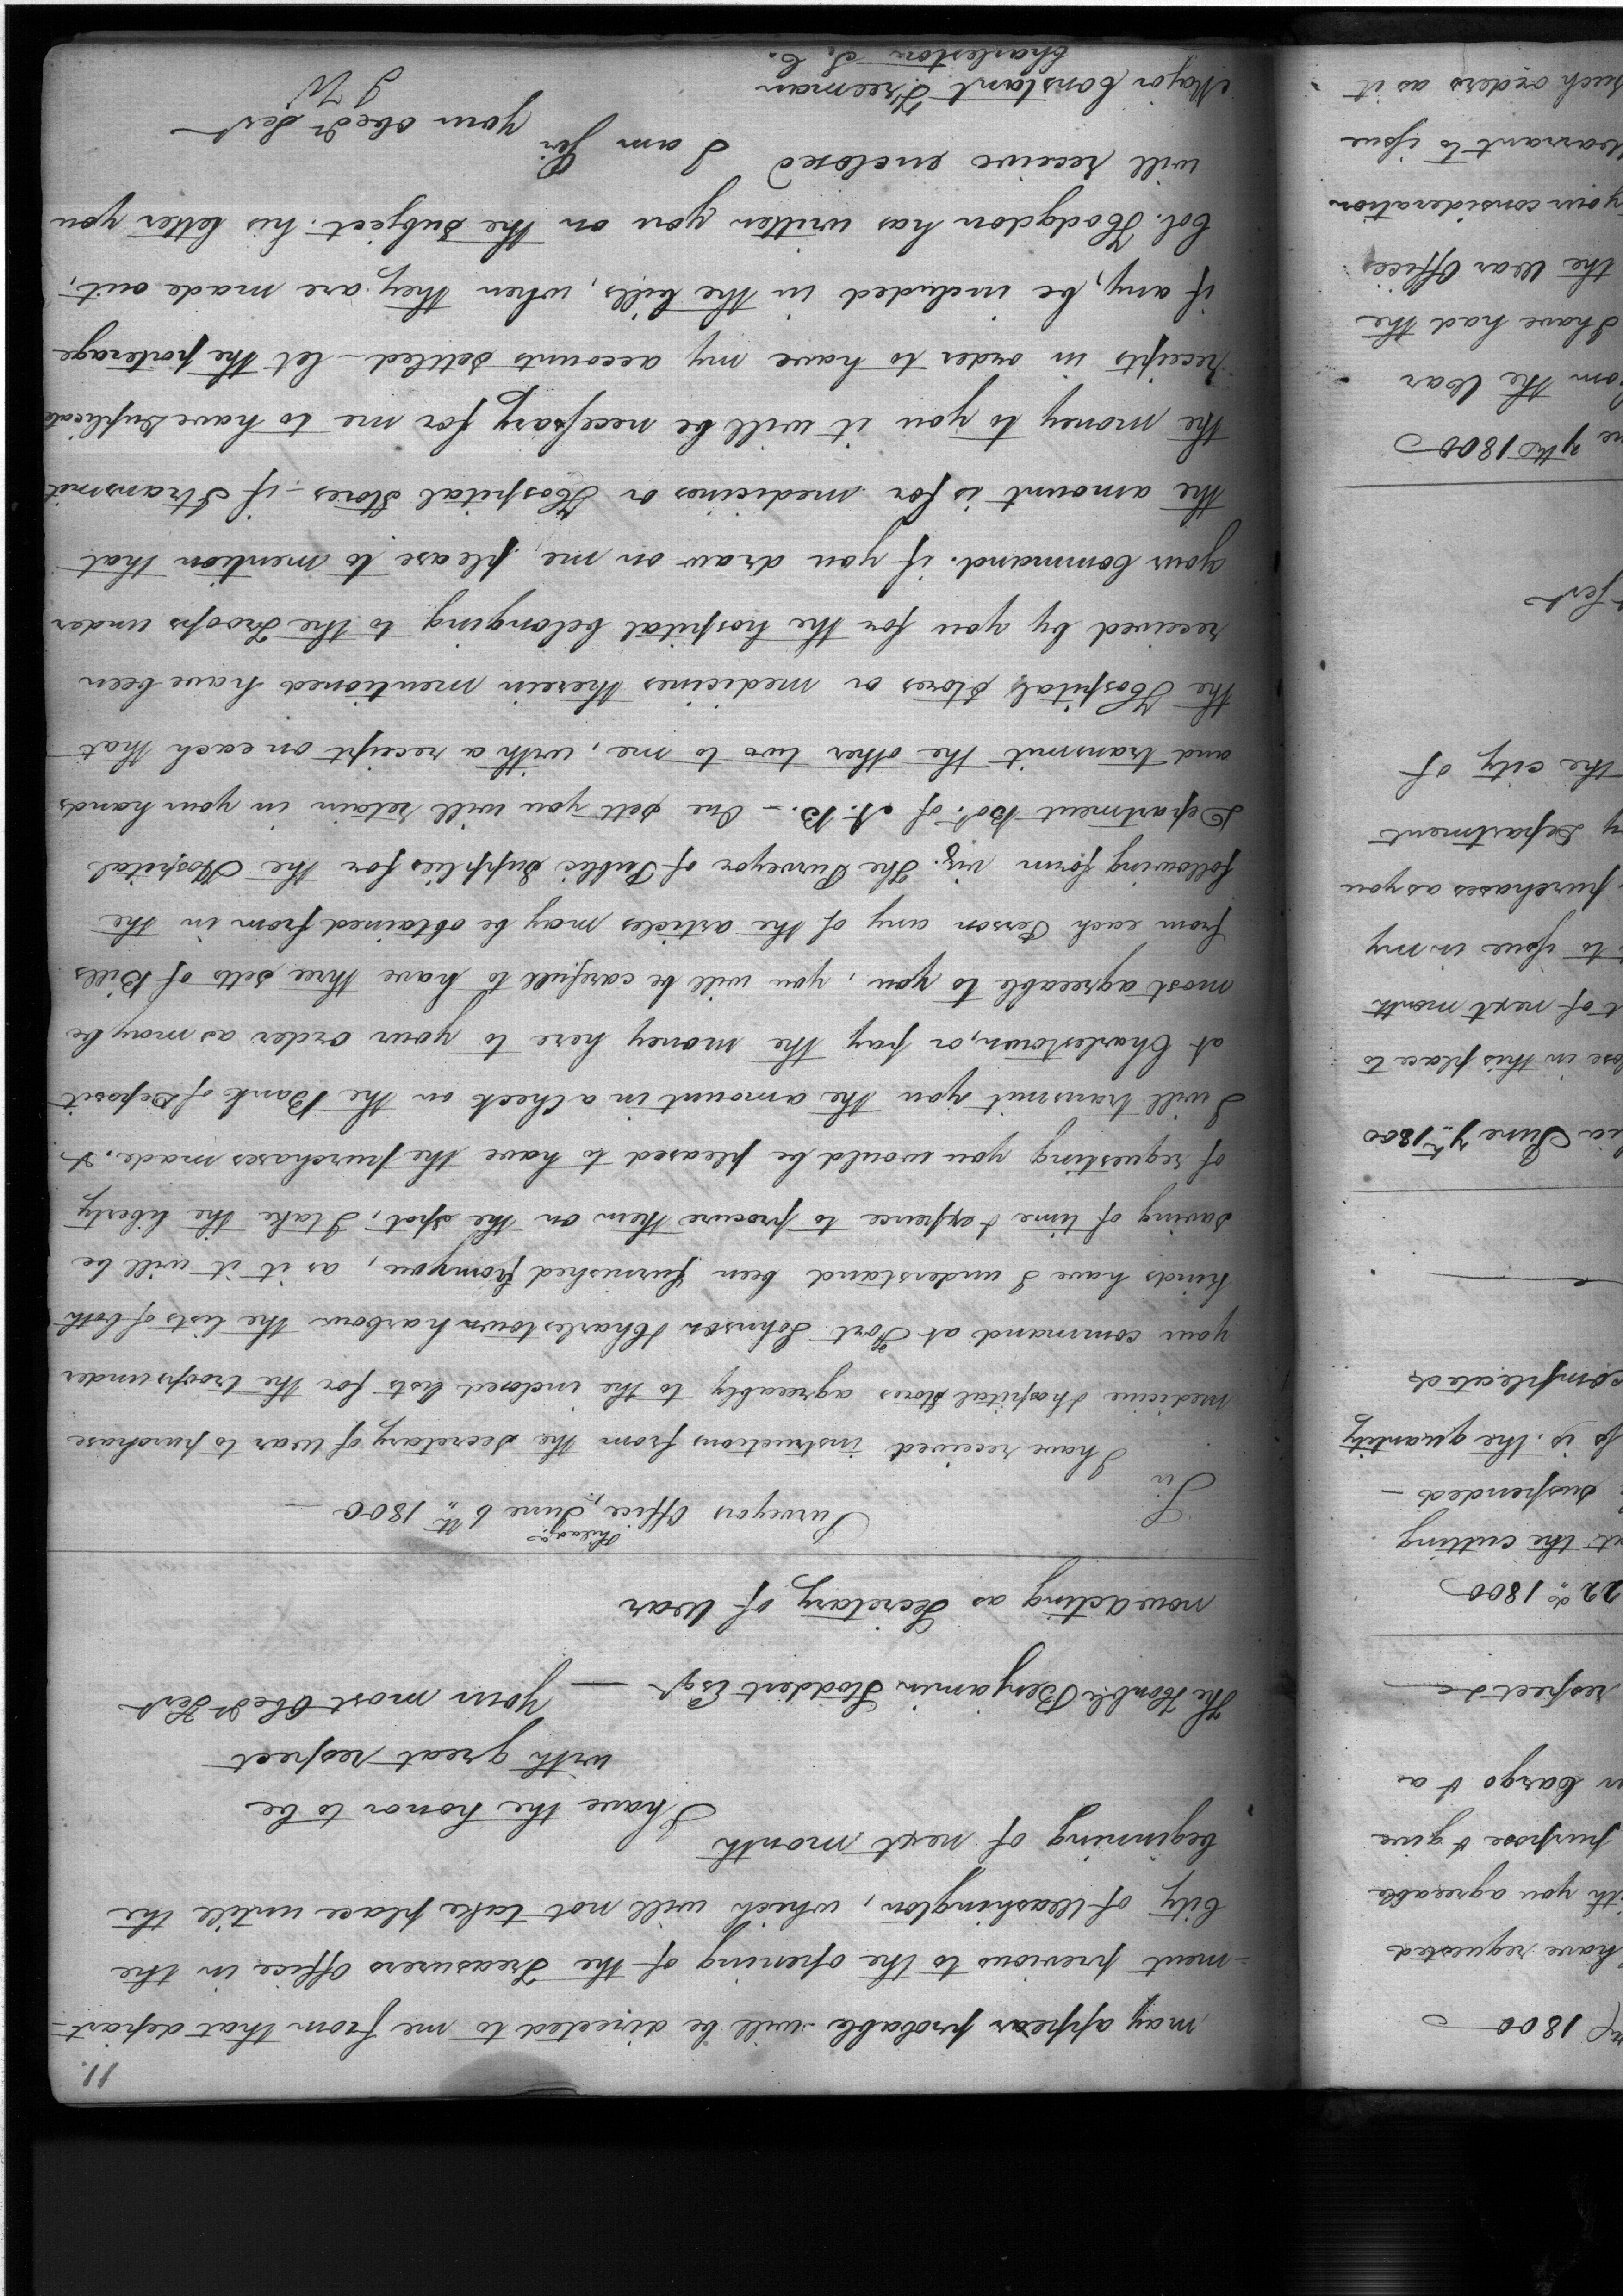 11.
may appear probable will be directed to me from that depart-
-ment previous to the opening of the Treasurers Office in the
City of Washington, which will not take place untill the
beginning of next month
I have the honor to be
with great respect
The Honble Benjamin Stoddert Esqr. — Your most Obedt Sert
now acting as Secretary of War
Purveyors Office, Philada. June 6th 1800 —
Sir
I have received instructions from the Secretary of War to purchase
medicine & hospital stores agreeably to the inclosed lists for the troops under
your command at Fort Johnson & Charlestown harbour the lists of both
kinds have I understand been furnished from you, as it it will be
saving of time & expence to procure them on the spot, I take the liberty
of requesting you would be pleased to have the purchases made. &
I will transmit you the amount in a Check on the Bank of Deposit
at Charlestown, or pay the money here to your order as may be
most agreeable to you, you will be carefull to have three setts of Bills
from each Person any of the articles may be obtained from in the
following form viz. The Purveyor of Public Supplies for the Hospital
Department Bot. of A. B. — One sett you will retain in your hands
and transmit the other two to me, with a receipt on each that
the Hospital stores or medicines therein mentioned have been
received by you for the hospital belonging to the Troops under
your Command. if you draw on me please to mention that
the amount is for medicines or Hospital Stores — if I transmit
the money to you it will be necessary for me to have duplicate
receipts in order to have my accounts settled — let the porterage
if any, be included in the bills, when they are made out,
Col. Hodgdon has written you on the subject. his letter you
will receive enclosed I am Sir
your obedt Sert
Major Constant Freeman I W
Charleston S. C.
nt 1800
have requested
ith you agreeable
purpose & give
n Cargo & a
respect &c
22d. 1800
t the cutting
suspended —
is. the quantity
complicated
ia June 7th. 1800
lose in this place to
t of next month
to issue in my
purchases as you
y Department
the city of
Sert
ne 7th 1800
om the War
I have had the
the War Office
your consideration
Warrant to issue
such orders as it